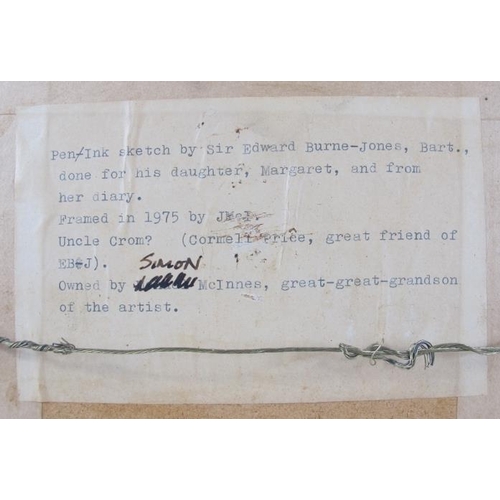 Pen/Ink sketch by Sir Edward Burne-Jones, Bart.,
done for his daughter, Margaret, and from
her diary.
Framed in 1975 by
Uncle Crom? (Cormell Price, great friend of
EB-J).
Owned by SIMON McInnes, great-great-grandson
of the artist.